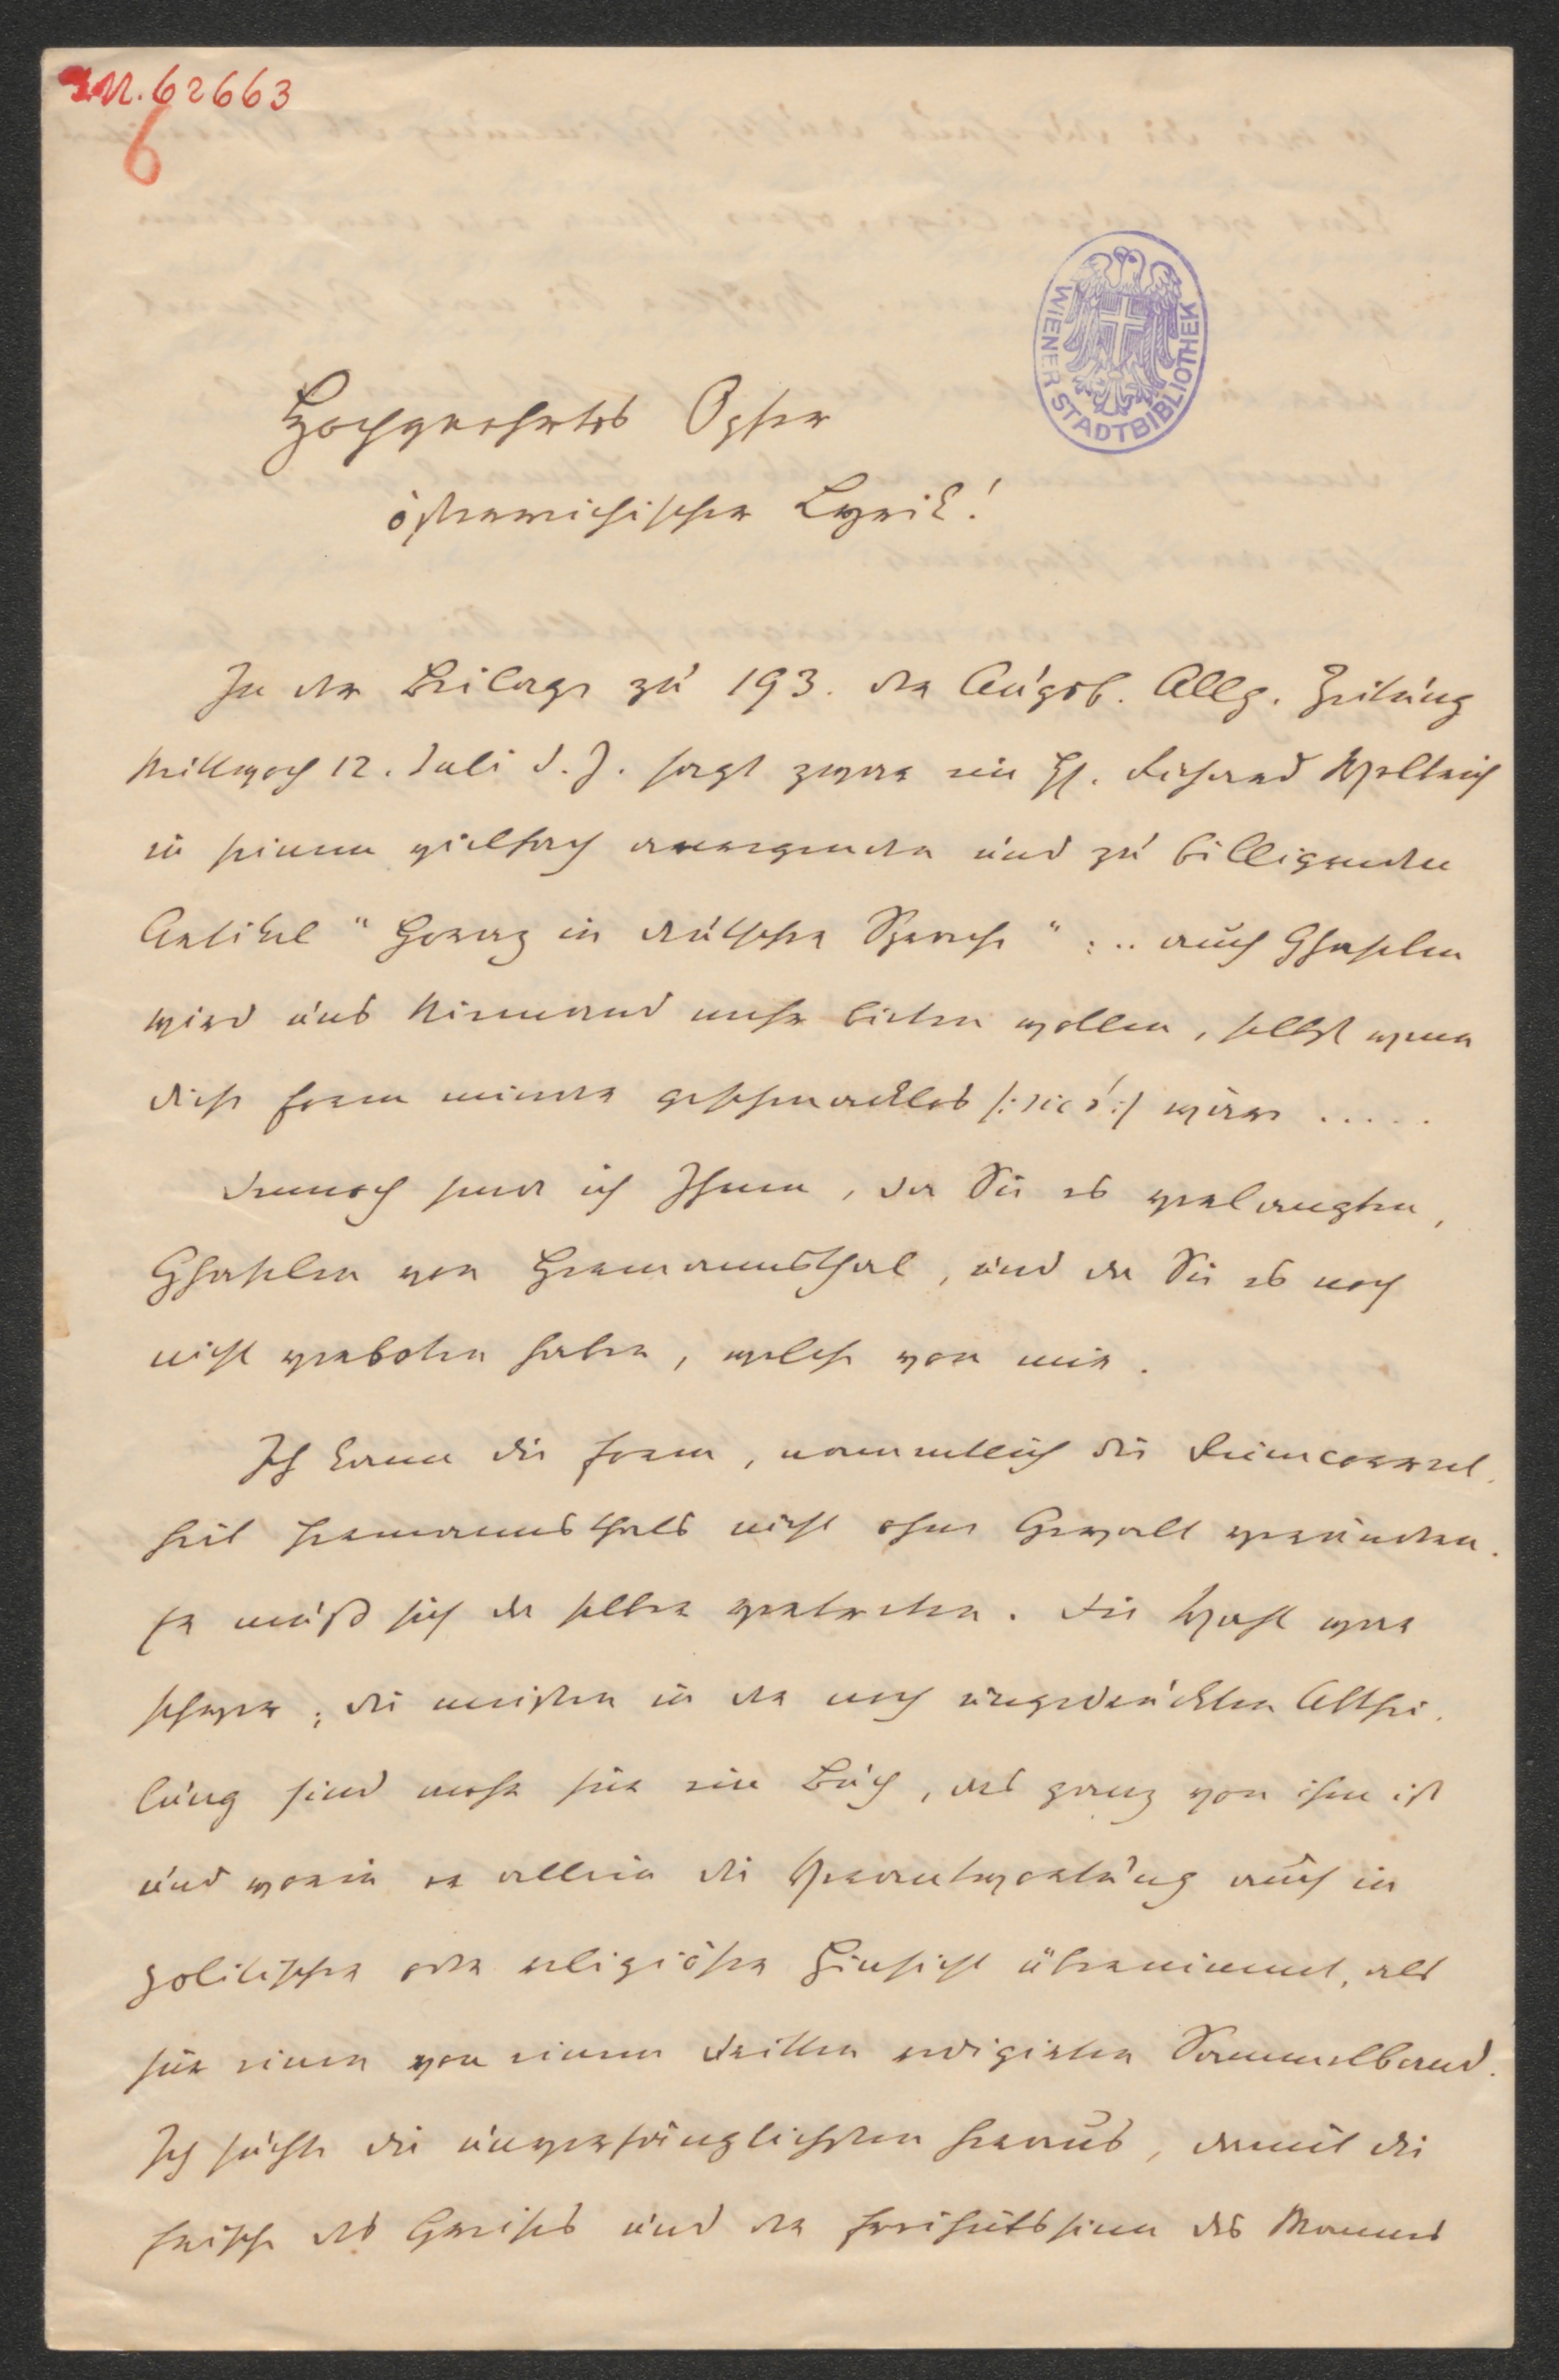 I.N. 62663
6
WIENER STADTBIBLIOTHEK
Hochgeehrtes Opfer
österreichischer Lyrik!
In der Beilage zu 193. der Augsb. Allg. Zeitung
Mittwoch 12. Juli d. J. sagt zwar ein H. Richard Weltrich
in seinem vielfach anregenden und zu billigenden
Artikel "Horaz in deutscher Sprache": .. auch Ghaselen
wird uns Niemand mehr bieten wollen, selbst wenn
diese Form minder geschmacklos /: sic!:/ wäre .....
Dennoch sende ich Ihnen, da Sie es verlangten,
Ghaselen von Hermannsthal, und da Sie es noch
nicht verboten haben, welche von mir.
Ich kann die Form, namentlich die Reimcorrect-
heit Hermannsthals nicht ohne Gewalt verändern.
Er muß sich da selber vertreten. Die Wahl war
schwer; die meisten in der noch ungedruckten Abthei-
lung sind mehr für ein Buch, das ganz von ihm ist
und worin er allein die Verantwortung auch in
politischer oder religiöser Hinsicht übernimmt, als
für einen von einem Dritten redigirten Sammelband.
Ich suchte die unverfänglichsten heraus, damit die
Frische des Greises und der Freiheitssinn des Mannes